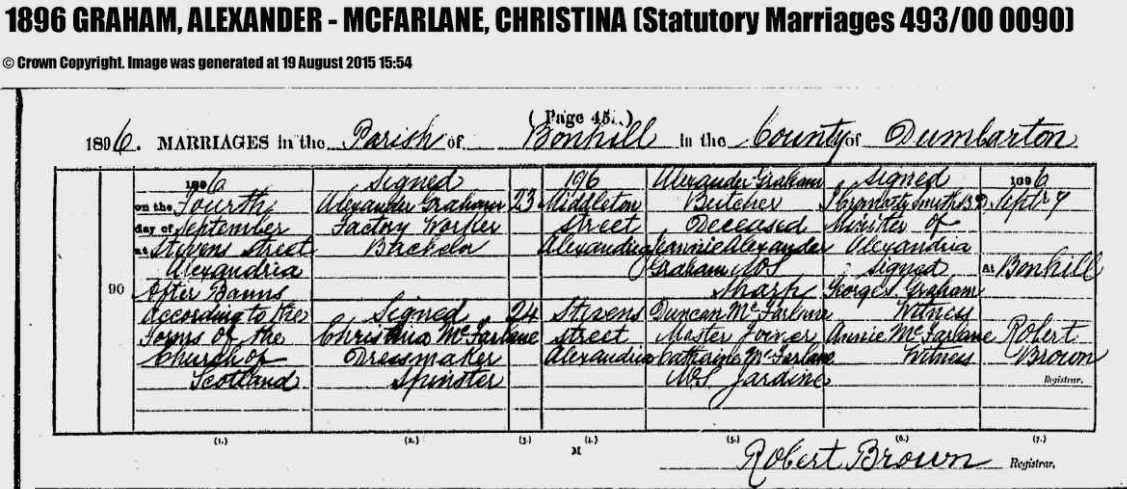 1896 GRAHAM, ALEXANDER - MCFARLANE, CHRISTINA (Statutory Marriages 493/00 0090)
© Crown Copyright. Image was generated at 19 August 2015 15:54
(Page 45.)
1896. MARRIAGES in the Parish of Bonhill in the County of Dumbarton
90
1896
on the Fourth
day of September
at Stevens Street
Alexandria
After Banns
According to the
Forms of the
Church of
Scotland
Signed
Alexander Graham
Factory Worker
Bachelor
Signed
Christina McFarlane
Dressmaker
Spinster
23
24
196
Middleton
Street
Alexandria
Stevens
Street
Alexandria
Alexander Graham
Butcher
Deceased
Jeannie Alexander
Graham M.S.
Sharp
Duncan McFarlane
Master Joiner
Catharine McFarlane
M.S. Jardine
Signed
Smith B.D.
Minister of
Alexandria
Signed
George S. Graham
Witness
Annie McFarlane
Witness
1896
Septr 7
At Bonhill
Robert
Brown
Registrar.
(1.) (2.) (3.) (4.) (5.) (6.) (7.)
M
Robert Brown Registrar.